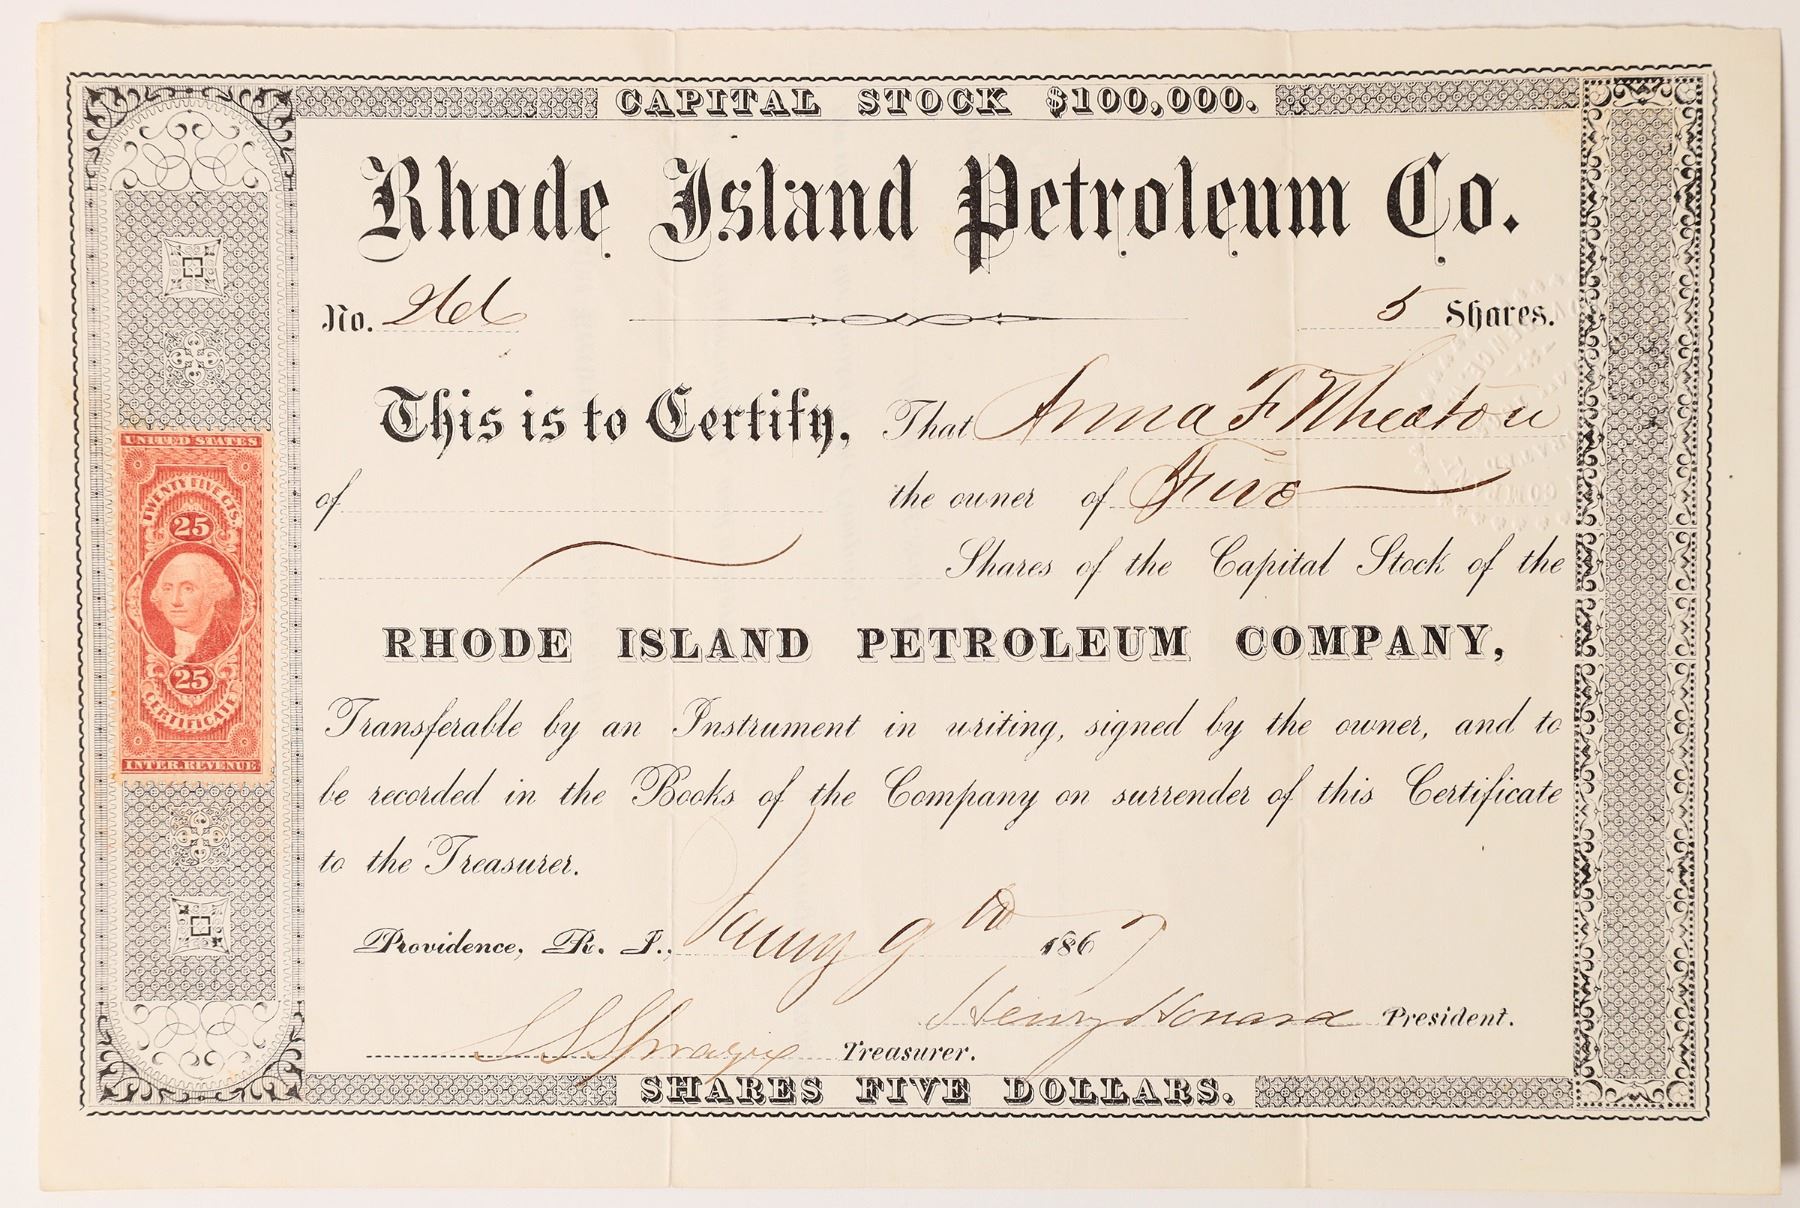 CAPITAL STOCK $100,000.
Rhode Island Petroleum Co.
No. 266 5 Shares.
This is to Certify, That Anna F Wheaton
of the owner of Five
Shares of the Capital Stock of the
RHODE ISLAND PETROLEUM COMPANY,
Transferable by an Instrument in writing, signed by the owner, and to
be recorded in the Books of the Company on surrender of this Certificate
to the Treasurer.
Providence, R. I., Jany 9th 1867
Henry Howard President.
S S Sprague Treasurer.
SHARES FIVE DOLLARS.
UNITED STATES
TWENTY FIVE CTS.
25
25
CERTIFICATE
INTER. REVENUE